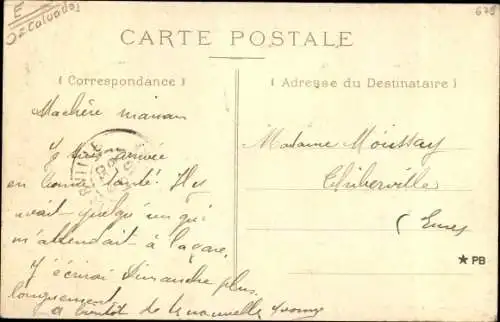 E
02 Calvados
679
CARTE POSTALE
( Correspondance )
( Adresse du Destinataire )
Machère maman
Je suis arrivée
en bonne santé. Il y
avait quelqu'un qui
m'attendait à la gare.
J'écrirai Dimanche plus
longuement
a bientôt de te nouvelle Yvonne
Madame Moussay
Thiberville
(Eure)
★ PB